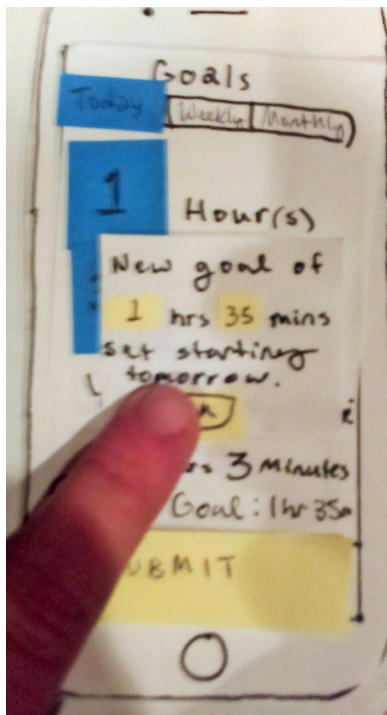 Goals
Today Weekly Monthly
1 Hour(s)
New goal of
1 hrs 35 mins
set starting
tomorrow.
3 Minutes
Goal: 1hr 35m
SUBMIT